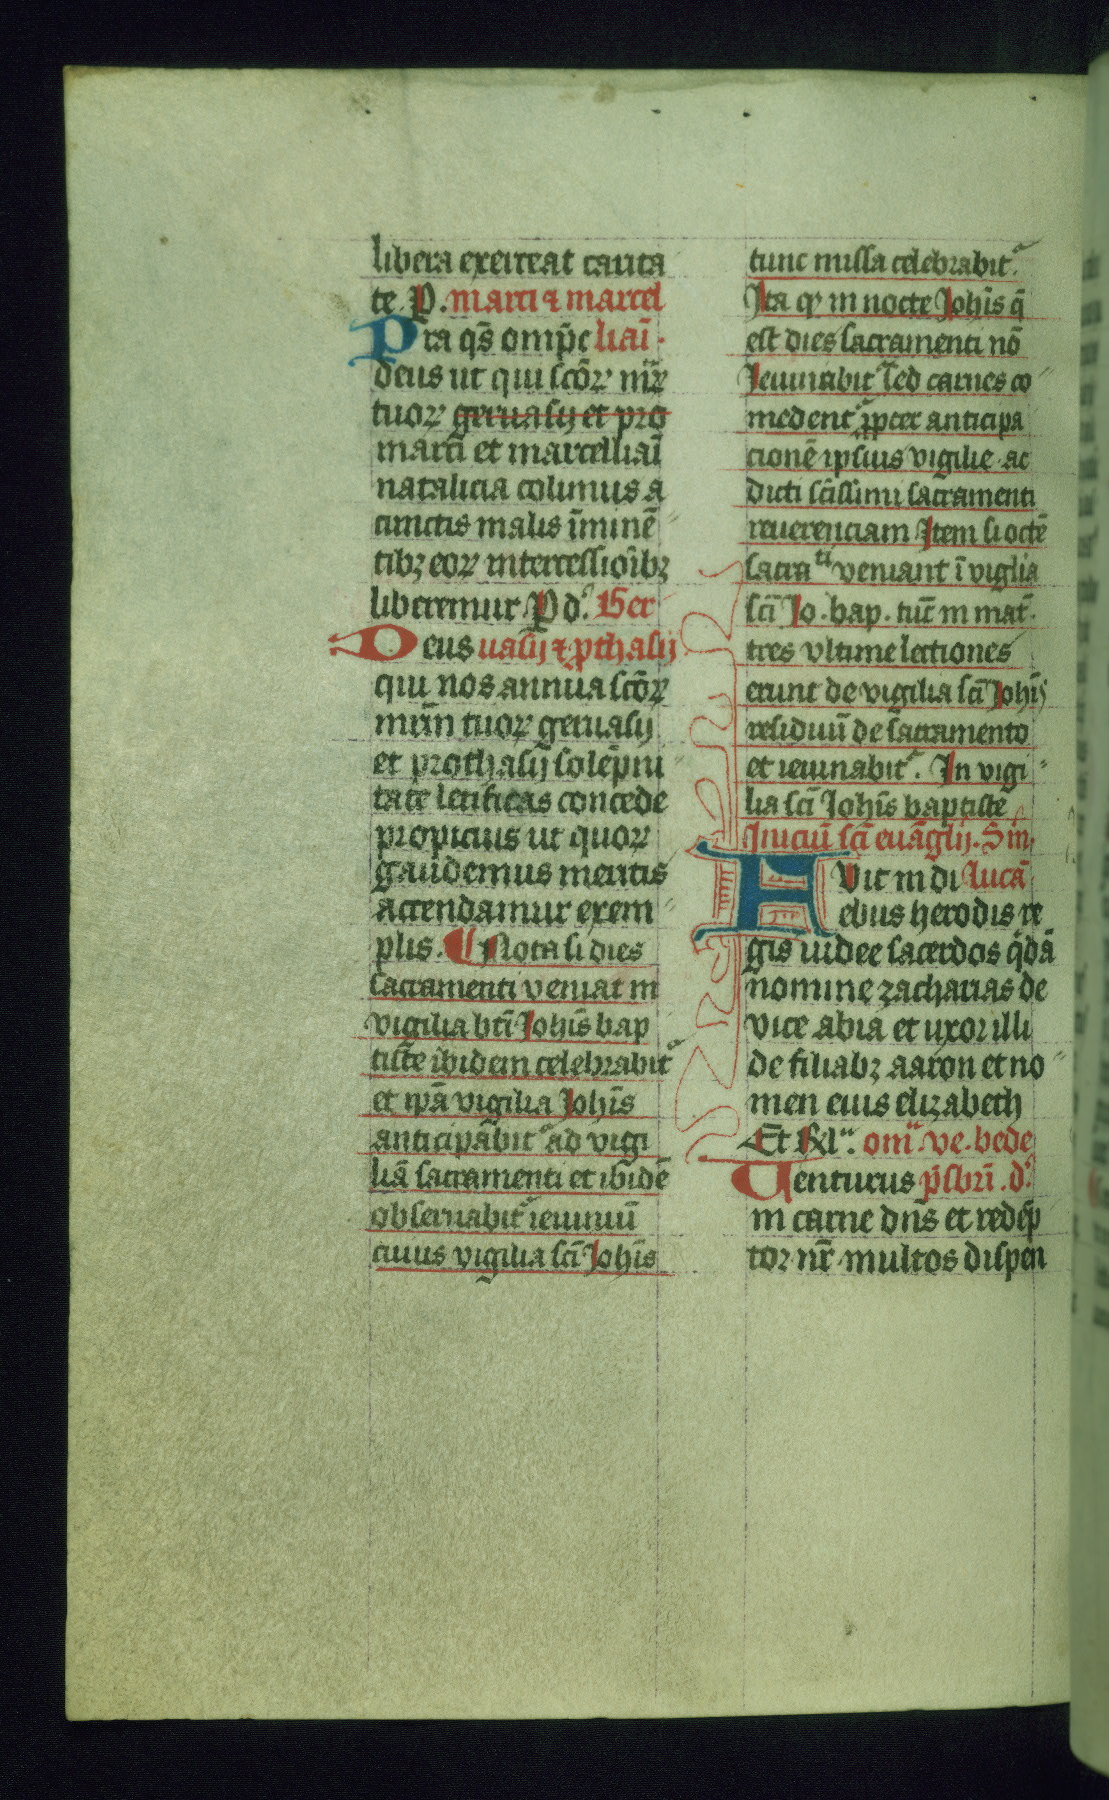 libera exerceat carita
te. P. marci ⁊ marcel
Pta qs̄ omp̄c liai᷑.
deus ut qui sc̄oꝝ mr̄
tuoꝝ geruasij et pro
marci᷑ et marcelliai᷑
natalicia colimus a
cunctis malis i᷑minē
tibꝫ eoꝝ intercessioi᷑bꝫ
liberemur P d᷑. Ger
Deus uasij ⁊ ꝓthasij
qui nos annua sc̄oꝝ
mr̄m tuoꝝ geruasij
et prothasij solēpni
tate letificas concede
propicius ut quoꝝ
gaudemus meritis
accendamur exem
plis. ¶ Nota si dies
sacramenti veniat in
vigilia bt̄i Joh̄is bap
tiste ibidem celebrabit᷑
et ip̄a vigilia Joh̄is
anticipabit᷑ ad vigi
liā sacramenti et ibidē
obseruabit᷑ ieiuniū
cuius vigilia sc̄i Joh̄is
tunc missa celebrabit᷑.
Ita ꝙ in nocte Joh̄is q̄
est dies sacramenti nō
Jeiunabit᷑ sed carnes co
medent᷑ ꝓpter anticipa
cionē ipsius vigilie ac
dicti sc̄issimi sacramenti
reuerenciam Item si octē
sacra ti veniant ī viglia
sc̄i Jo. bap. tūc in mat̄.
tres vltime lectiones
erunt de vigilia sc̄i Joh̄is
residuū de sacramento
et ieiunabit᷑. In vigi
lia sc̄i Joh̄is baptiste
Iniciū sc̄i euāglij. Sm̄.
FVit in di lucā
ebus herodis re
gis iudee sacerdos q̇dā
nomine zacharias de
vice abia et uxor illi
de filiabꝫ aaron et no
men eius elizabeth
Et Rl᷑. om̄. ve. bede
Uenturus p̄sbri᷑. d᷑.
in carne dn̄s et redēp
tor nr̄ multos dispen